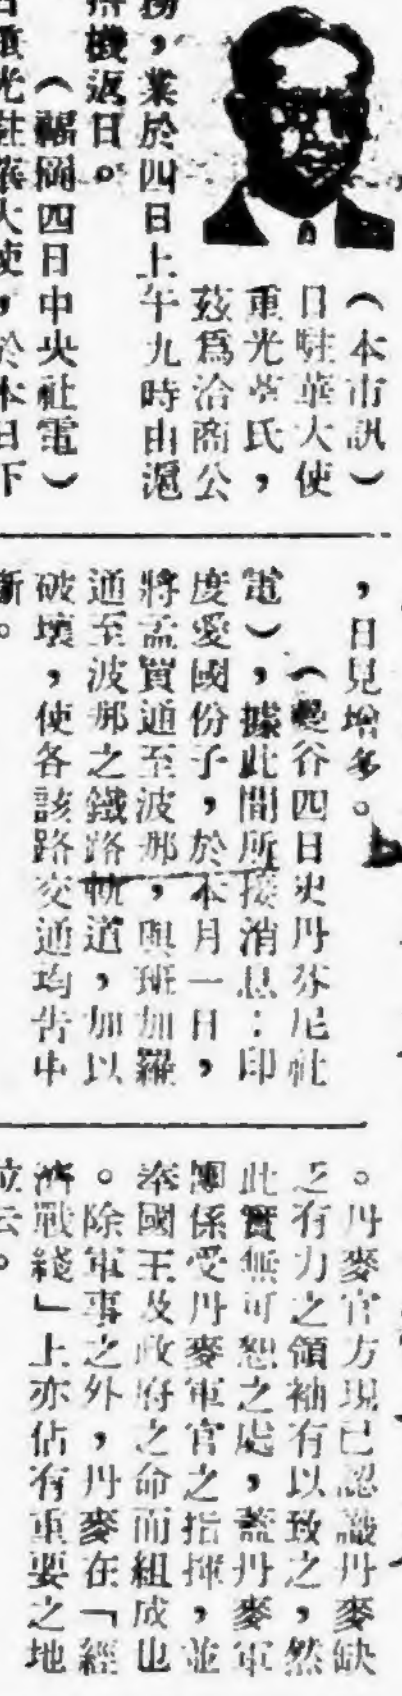 （本市訊）
日駐華大使
重光葵氏，
茲爲洽商公
務，業於四日上午九時由滬
搭機返日。
（福岡四日中央社電）
日重光駐華大使，於本日下
，日見增多。
（曼谷四日史丹芬尼社
電），據此間所接消息：印
度愛國份子，於本月一日，
將孟買通至波那，與班加羅
通至波那之鐵路軌道，加以
破壞，使各該路交通均告中
斷。
。丹麥官方現已認識丹麥缺
乏有力之領袖有以致之，然
此實無可恕之處，蓋丹麥軍
團係受丹麥軍官之指揮，並
奉國王及政府之命而組成也
。除軍事之外，丹麥在「經
濟戰綫」上亦佔有重要之地
位云。